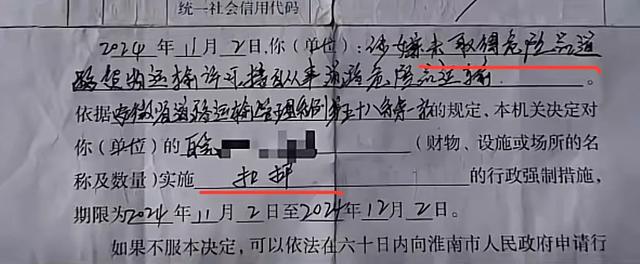 统一社会信用代码
2024年11月2日,你(单位):涉嫌未取得危险品道
路货物运输许可,擅自从事道路危险品运输。
依据安徽省道路运输管理条例第五十八条第一款的规定,本机关决定对
你(单位)的(财物、设施或场所的名
称及数量)实施扣押的行政强制措施,
期限为2024年11月2日至2024年12月2日。
如果不服本决定,可以依法在六十日内向淮南市人民政府申请行